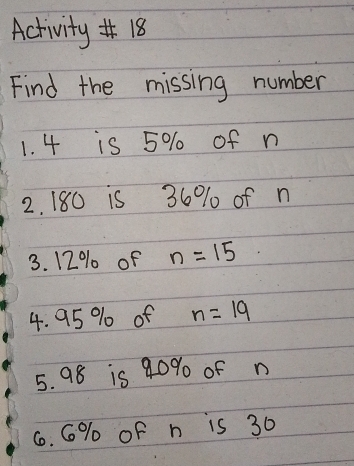 Activity # 18
Find the missing number
1. 4 is 5% of n
2. 180 is 36% of n
3. 12% of n = 15
4. 95% of n = 19
5. 98 is 20% of n
6. 6% of n is 30